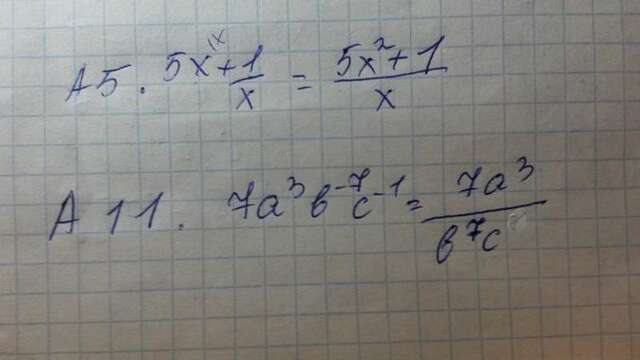 A5. 5x^{\x} + 1/x = (5x² + 1)/x
A 11. 7a³ в⁻⁷ c⁻¹ = 7a³/(в⁷c)